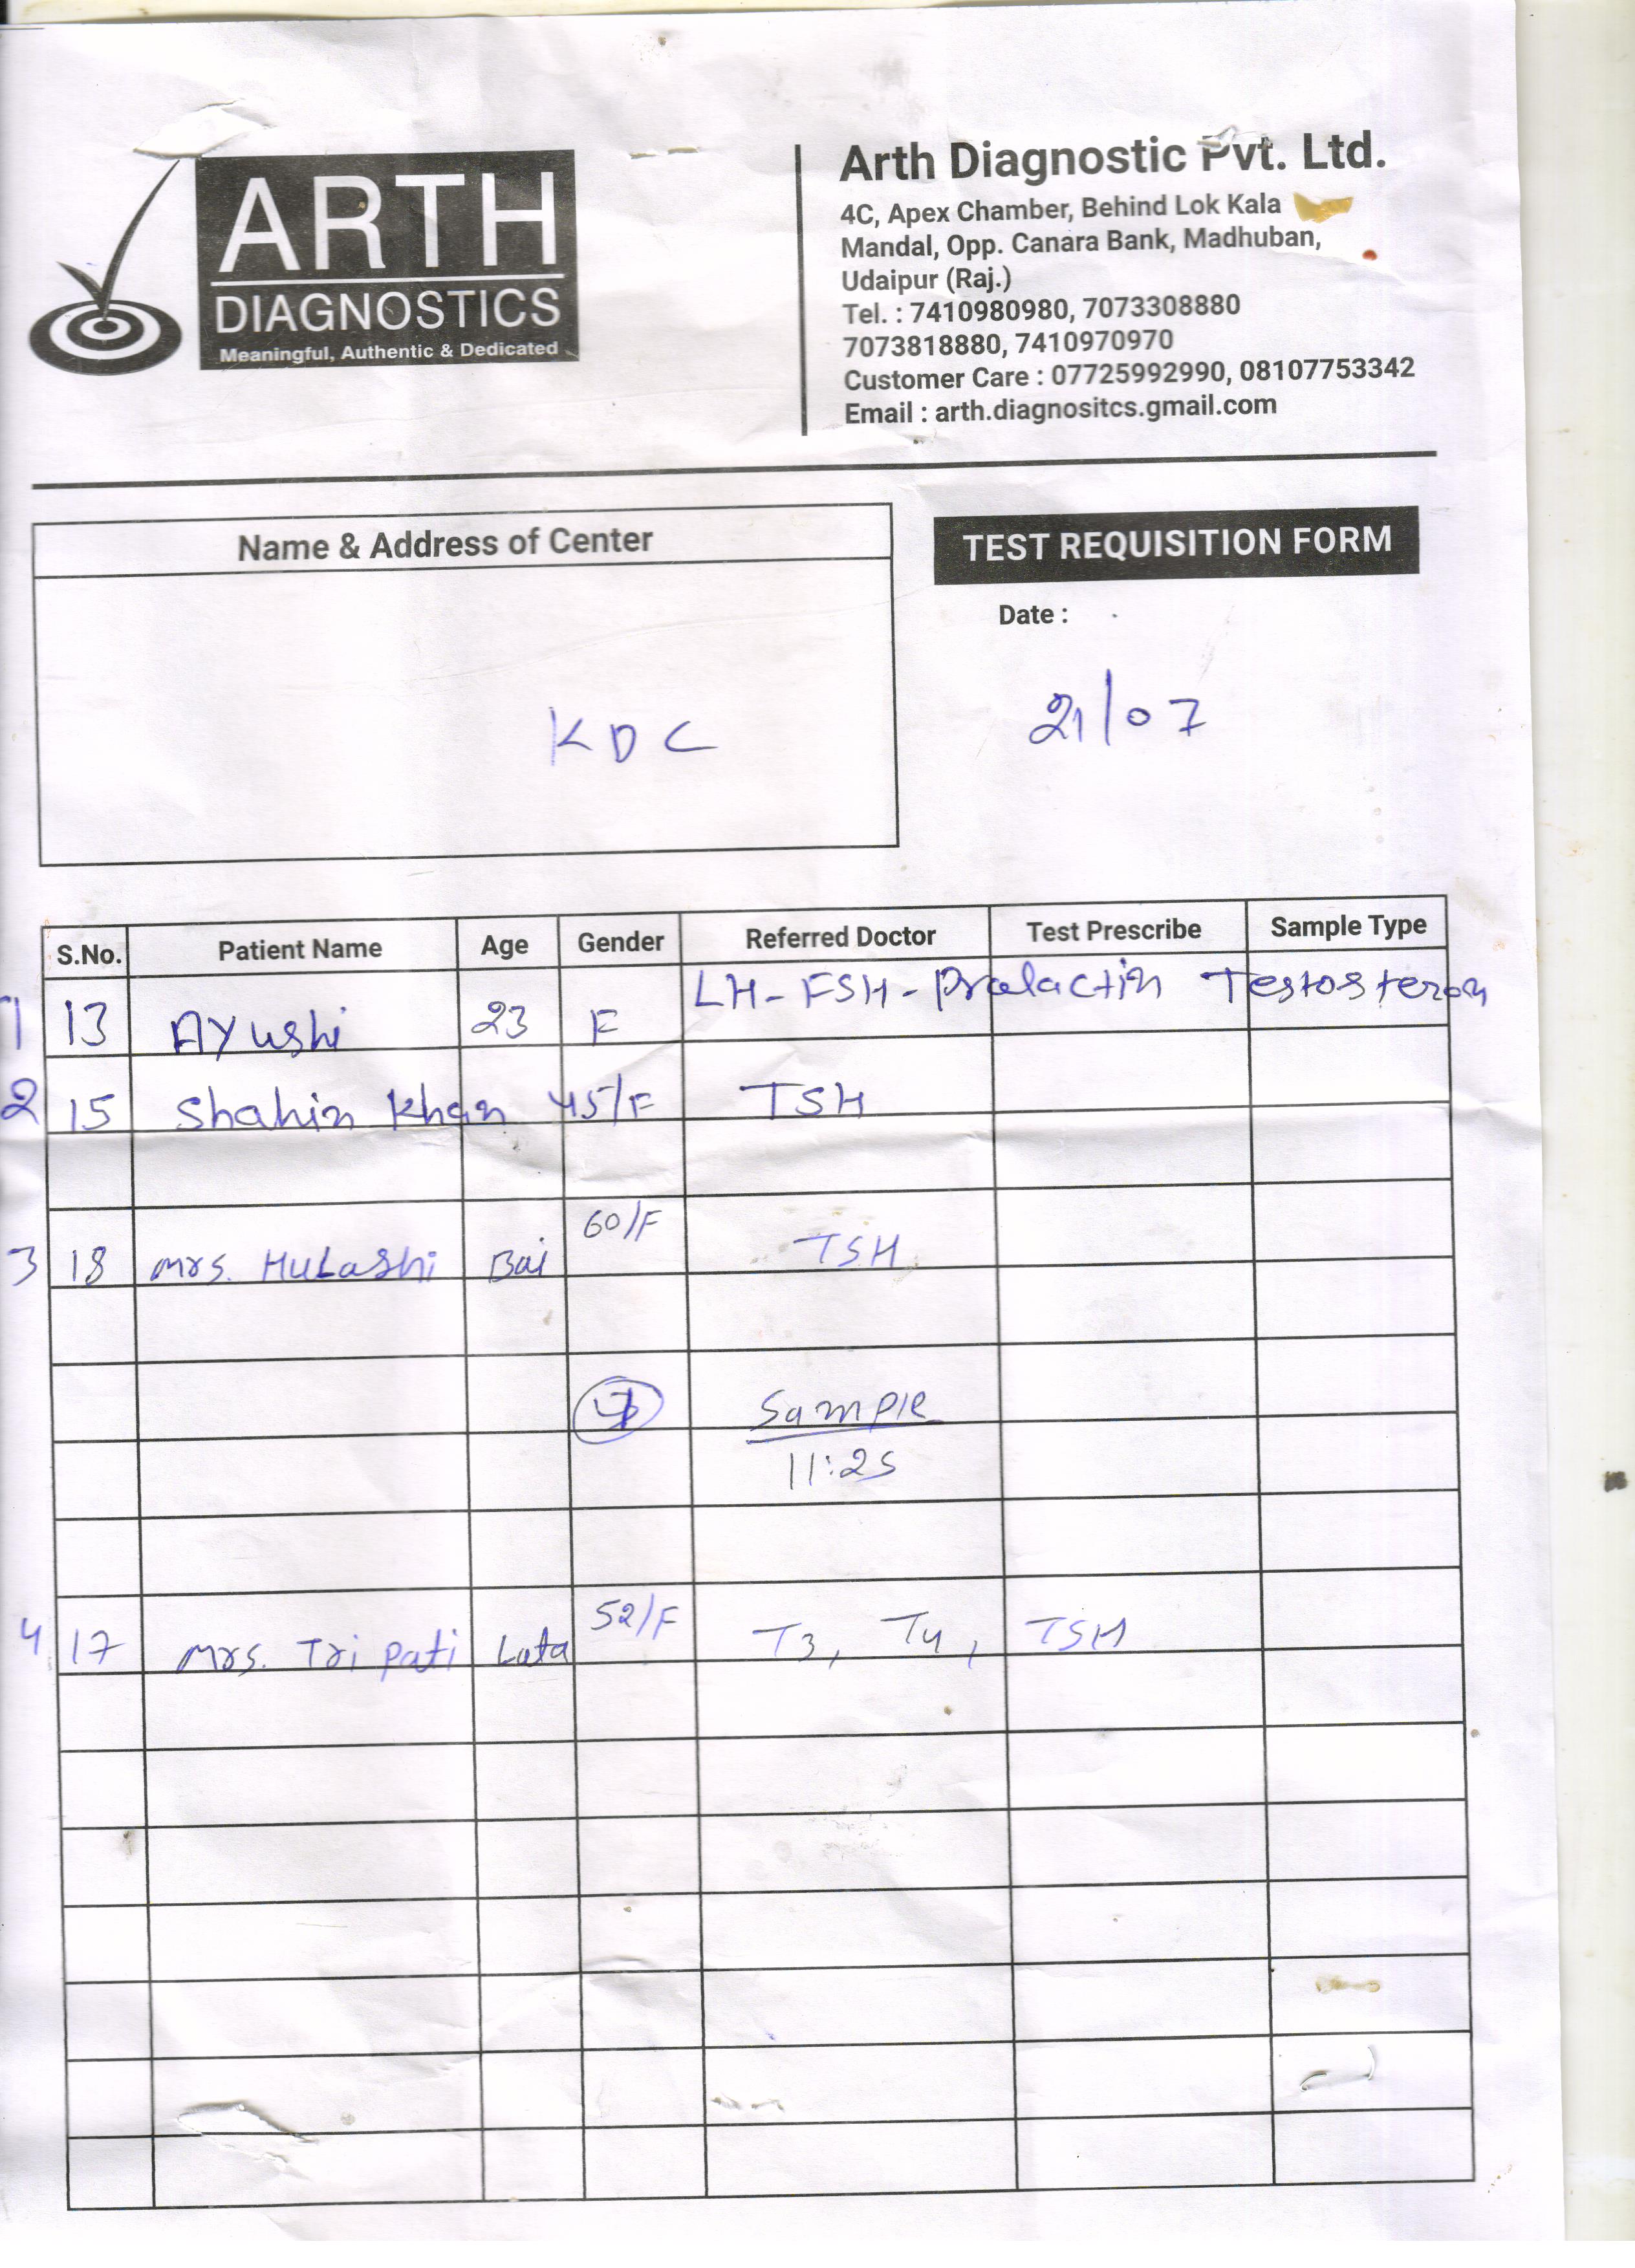 ARTH
DIAGNOSTICS
Meaningful, Authentic & Dedicated
Arth Diagnostic Pvt. Ltd.
4C, Apex Chamber, Behind Lok Kala
Mandal, Opp. Canara Bank, Madhuban,
Udaipur (Raj.)
Tel. : 7410980980, 7073308880
7073818880, 7410970970
Customer Care : 07725992990, 08107753342
Email : arth.diagnositcs.gmail.com
Name & Address of Center
KDC
TEST REQUISITION FORM
Date :
21/07
S.No. Patient Name Age Gender Referred Doctor Test Prescribe Sample Type
1 13 Ayushi 23 F LH-FSH-Prolactin Testosteron
2 15 Shahin Khan 45/F TSH
3 18 Mrs. Hulashi Bai 60/F TSH
Sample
11:25
4 17 Mrs. Tri pati Lata 52/F T3, T4, TSH